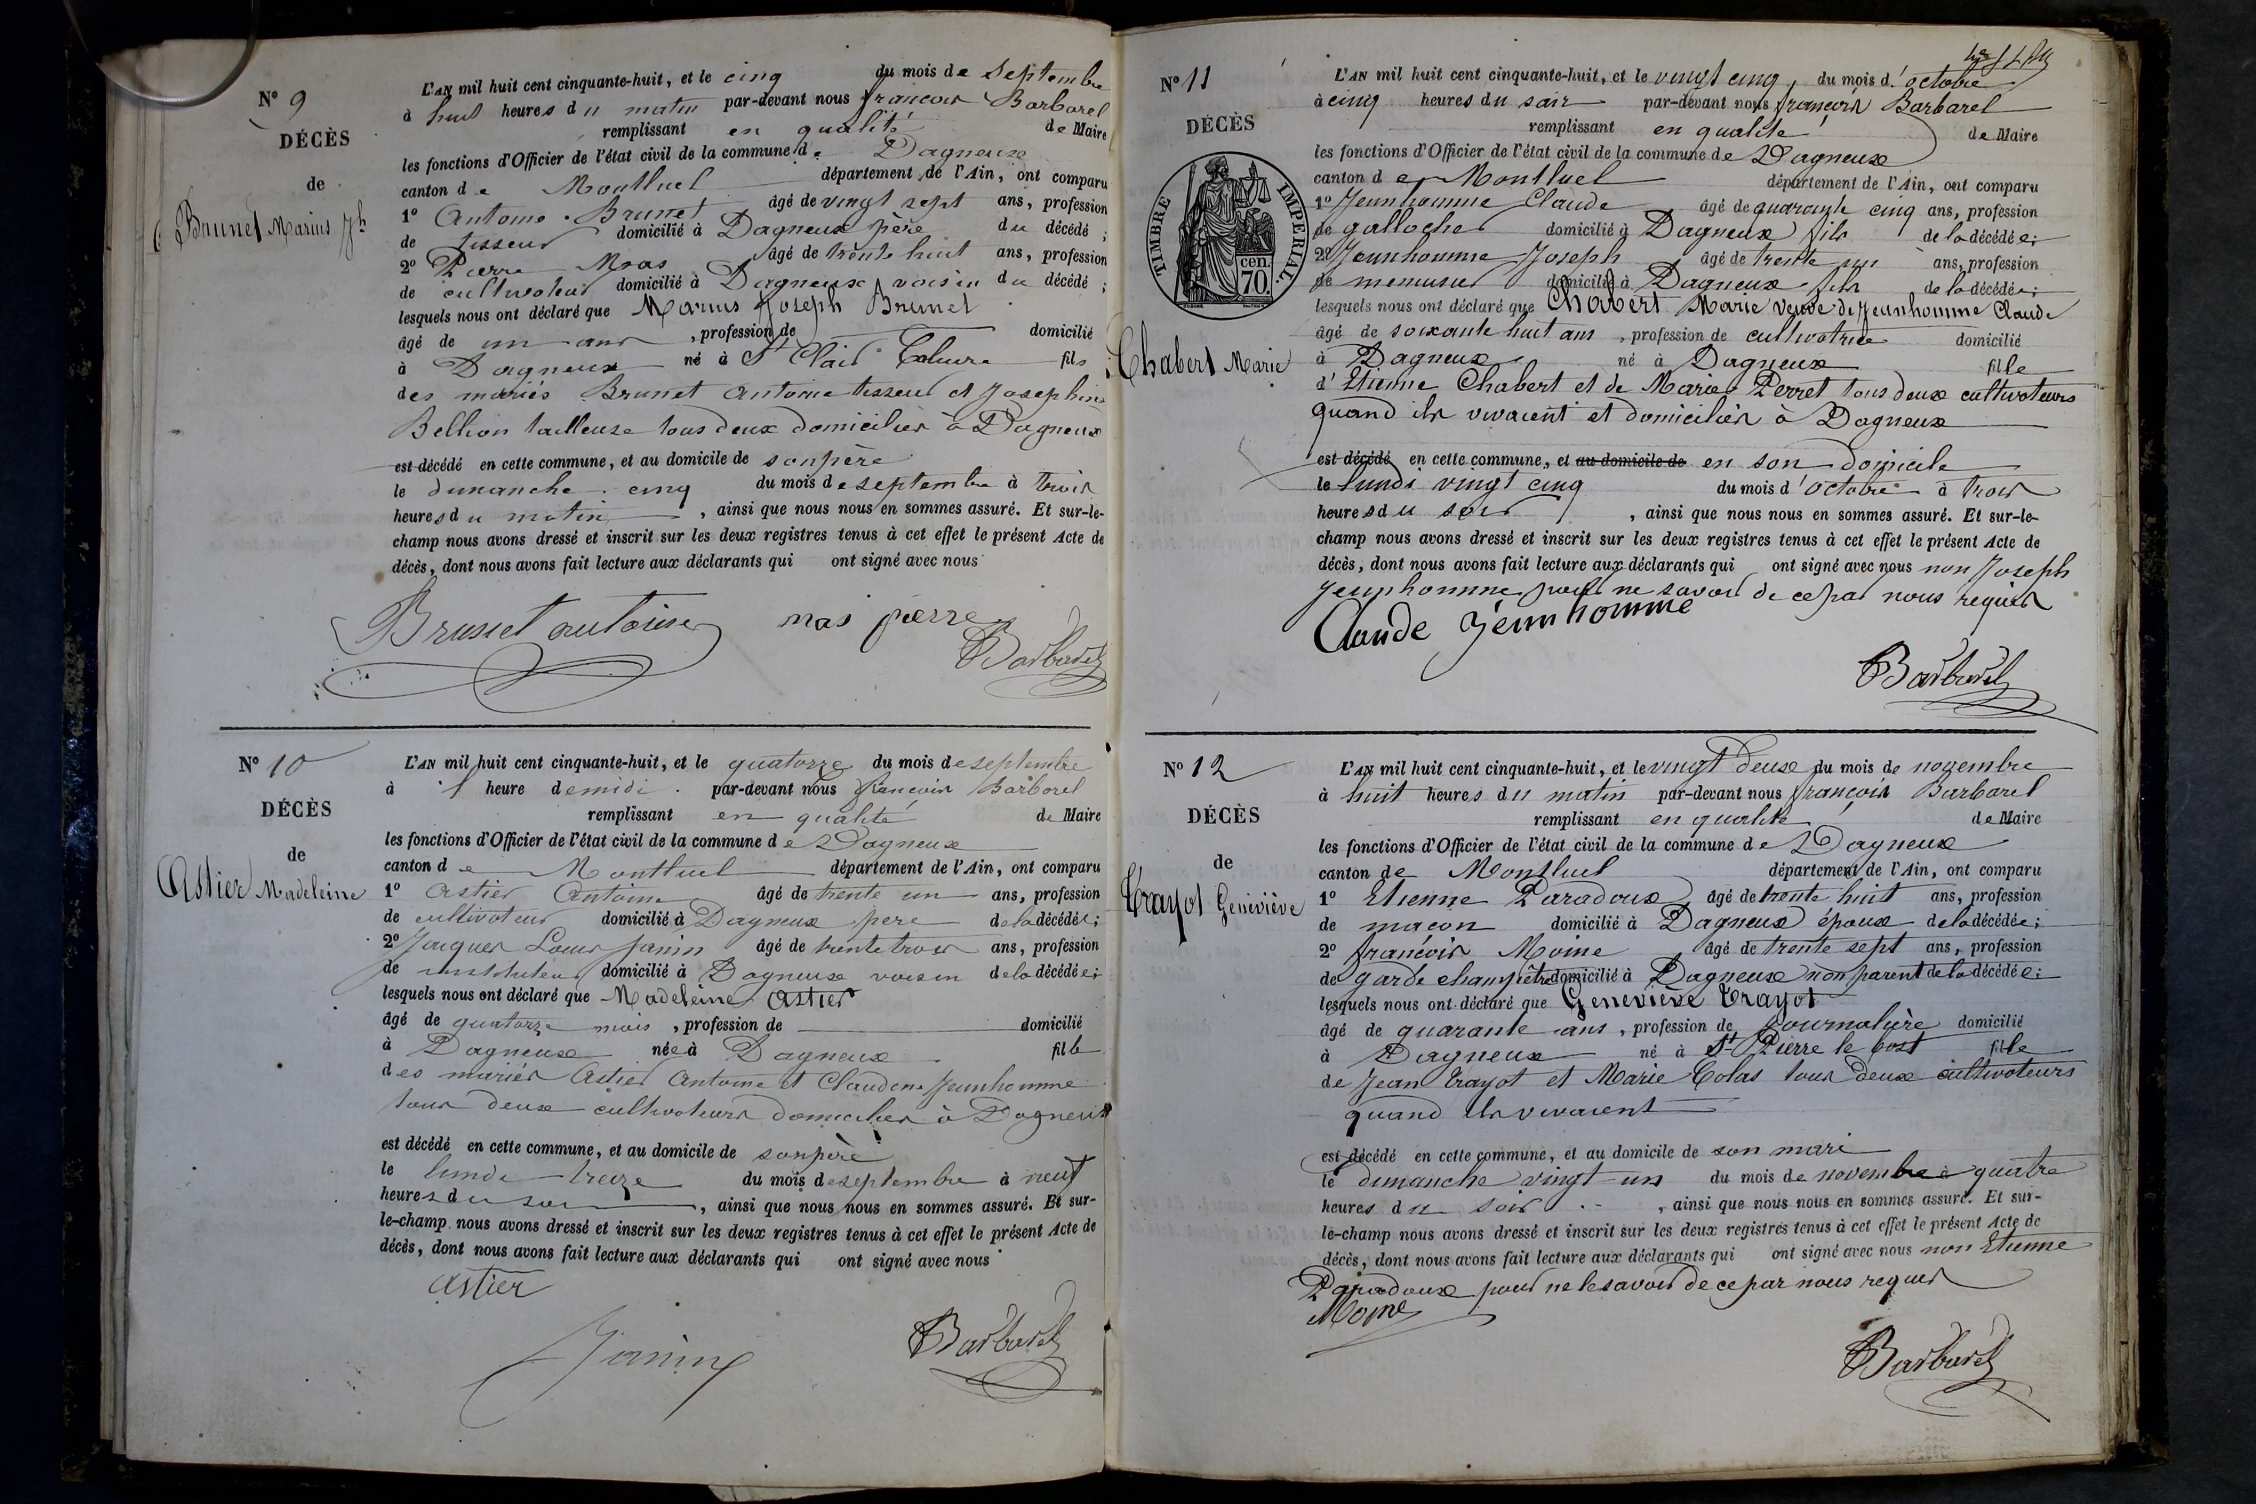 N° 9
DÉCÈS
de
Brunet Marius Jh
L'AN mil huit cent cinquante-huit, et le cinq du mois de Septembre
à huit heures du matin par-devant nous françois Barbarel
remplissant en qualité de Maire
les fonctions d'Officier de l'état civil de la commune de Dagneux
canton de Montluel département de l'Ain, ont comparu
1° Antoine Brunet âgé de vingt sept ans, profession
de tisseur domicilié à Dagneux père du décédé ;
2° Pierre Mras âgé de trente huit ans, profession
de cultivateur domicilié à Dagneux voisin du décédé ;
lesquels nous ont déclaré que Marius Joseph Brunet
âgé de un ans , profession de domicilié
à Dagneux né à St Clair Caluire fils
des mariés Brunet Antoine tisseur et Josephine
Bellion tailleuse tous deux domiciliés à Dagneux
est décédé en cette commune, et au domicile de son père
le dimanche cinq du mois de septembre à trois
heures du matin , ainsi que nous nous en sommes assuré. Et sur-le-
champ nous avons dressé et inscrit sur les deux registres tenus à cet effet le présent Acte de
décès, dont nous avons fait lecture aux déclarants qui ont signé avec nous
Brunet antoine mas pierre
Barbarel
N° 10
DÉCÈS
de
Astier Madeleine
L'AN mil huit cent cinquante-huit, et le quatorze du mois de septembre
à 1 heure demidi par-devant nous françois Barbarel
remplissant en qualité de Maire
les fonctions d'Officier de l'état civil de la commune de Dagneux
canton de Montluel département de l'Ain, ont comparu
1° Astier Antoine âgé de trente un ans, profession
de cultivateur domicilié à Dagneux père de la décédée ;
2° Jacques Louis Janin âgé de trente trois ans, profession
de instituteur domicilié à Dagneux voisin de la décédée ;
lesquels nous ont déclaré que Madeleine Astier
âgé de quatorze mois , profession de domicilié
à Dagneux née à Dagneux fille
des mariés Astier Antoine et Claudine Jeunhomme
tous deux cultivateurs domiciliés à Dagneux
est décédé en cette commune, et au domicile de son père
le lundi treize du mois de septembre à neuf
heures du soir , ainsi que nous nous en sommes assuré. Et sur-
le-champ nous avons dressé et inscrit sur les deux registres tenus à cet effet le présent Acte de
décès, dont nous avons fait lecture aux déclarants qui ont signé avec nous
Astier
Janin Barbarel
N° 11
DÉCÈS
TIMBRE IMPÉRIAL.
cen.
70.
Chabert Marie
L'AN mil huit cent cinquante-huit, et le vingt cinq du mois d'octobre
à cinq heures du soir par-devant nous françois Barbarel
remplissant en qualité de Maire
les fonctions d'Officier de l'état civil de la commune de Dagneux
canton de Montluel département de l'Ain, ont comparu
1° Jeunhomme Claude âgé de quarante cinq ans, profession
de gallocher domicilié à Dagneux fils de la décédée ;
2° Jeunhomme Joseph âgé de trente un ans, profession
de menusier domicilié à Dagneux fils de la décédée ;
lesquels nous ont déclaré que Chabert Marie veuve de Jeunhomme Claude
âgé de soixante huit ans , profession de cultivatrice domicilié
à Dagneux né à Dagneux fille
d'Etienne Chabert et de Marie Perret tous deux cultivateurs
quand ils vivaient et domiciliés à Dagneux
est décédé en cette commune, et au domicile de en son domicile
le lundi vingt cinq du mois d'octobre à trois
heures du soir , ainsi que nous nous en sommes assuré. Et sur-le-
champ nous avons dressé et inscrit sur les deux registres tenus à cet effet le présent Acte de
décès, dont nous avons fait lecture aux déclarants qui ont signé avec nous non Joseph
Jeunhomme pour ne savoir de ce par nous requis
Claude Jeunhomme
Barbarel
N° 12
DÉCÈS
de
Trayot Geneviève
L'AN mil huit cent cinquante-huit, et le vingt deux du mois de novembre
à huit heures du matin par-devant nous françois Barbarel
remplissant en qualité de Maire
les fonctions d'Officier de l'état civil de la commune de Dagneux
canton de Montluel département de l'Ain, ont comparu
1° Etienne Paradoux âgé de trente huit ans, profession
de maçon domicilié à Dagneux époux de la décédée ;
2° françois Moine âgé de trente sept ans, profession
de garde champêtre domicilié à Dagneux non parent de la décédée ;
lesquels nous ont déclaré que Geneviève Trayot
âgé de quarante ans , profession de journalière domicilié
à Dagneux né à St Pierre le bost fille
de Jean Trayot et Marie Colas tous deux cultivateurs
quand ils vivaient
est décédé en cette commune, et au domicile de son mari
le dimanche vingt un du mois de novembre à quatre
heures du soir , ainsi que nous nous en sommes assuré. Et sur-
le-champ nous avons dressé et inscrit sur les deux registres tenus à cet effet le présent Acte de
décès, dont nous avons fait lecture aux déclarants qui ont signé avec nous non Etienne
Paradoux pour ne le savoir de ce par nous requis
Moine
Barbarel